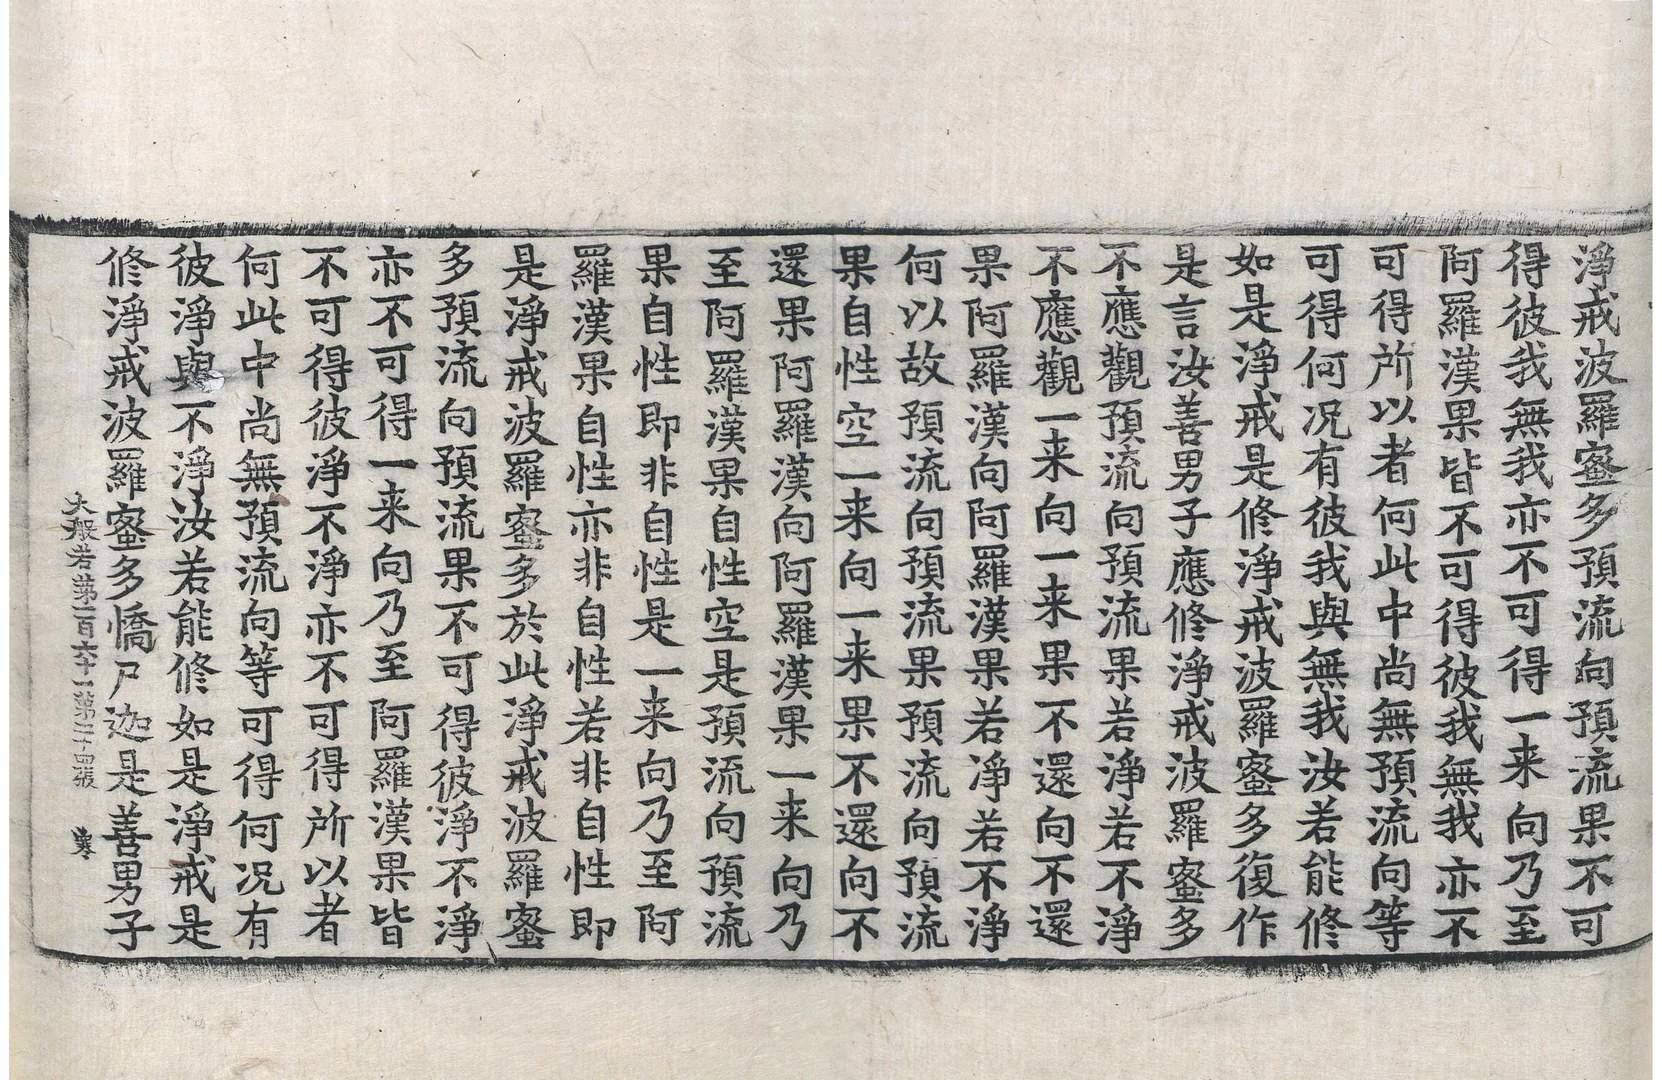 淨戒波羅蜜多預流向預流果不可
得彼我無我亦不可得一来向乃至
阿羅漢果皆不可得彼我無我亦不
可得所以者何此中尚無預流向等
可得何况有彼我與無我汝若能修
如是淨戒是修淨戒波羅蜜多復作
是言汝善男子應修淨戒波羅蜜多
不應觀預流向預流果若淨若不淨
不應觀一来向一来果不還向不還
果阿羅漢向阿羅漢果若淨若不淨
何以故預流向預流果預流向預流
果自性空一来向一来果不還向不
還果阿羅漢向阿羅漢果一来向乃
至阿羅漢果自性空是預流向預流
果自性即非自性是一来向乃至阿
羅漢果自性亦非自性若非自性即
是淨戒波羅蜜多於此淨戒波羅蜜
多預流向預流果不可得彼淨不淨
亦不可得一来向乃至阿羅漢果皆
不可得彼淨不淨亦不可得所以者
何此中尚無預流向等可得何况有
彼淨與不淨汝若能修如是淨戒是
修淨戒波羅蜜多憍尸迦是善男子
大般若第一百六十一第二十四張 寒